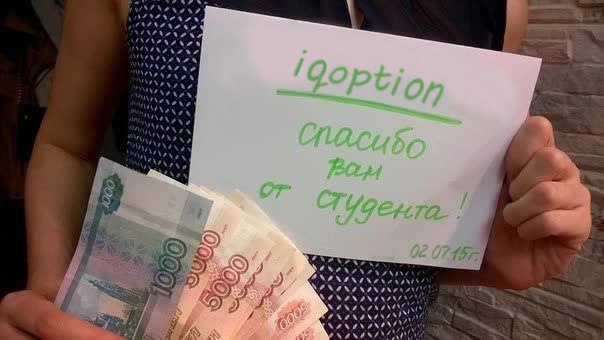 iqoption
спасибо
вам
от студента!
02.07.15г.
1000
1000
5000
5000